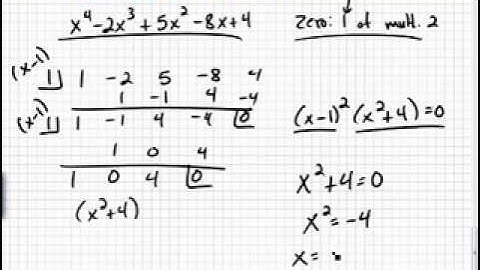 x⁴-2x³+5x²-8x+4
Zero: 1 of mult. 2
(x-1) 1 1 -2 5 -8 4
1 -1 4 -4
(x-1) 1 1 -1 4 -4 0
1 0 4
1 0 4 0
(x²+4)
(x-1)²(x²+4)=0
x²+4=0
x²=-4
x=